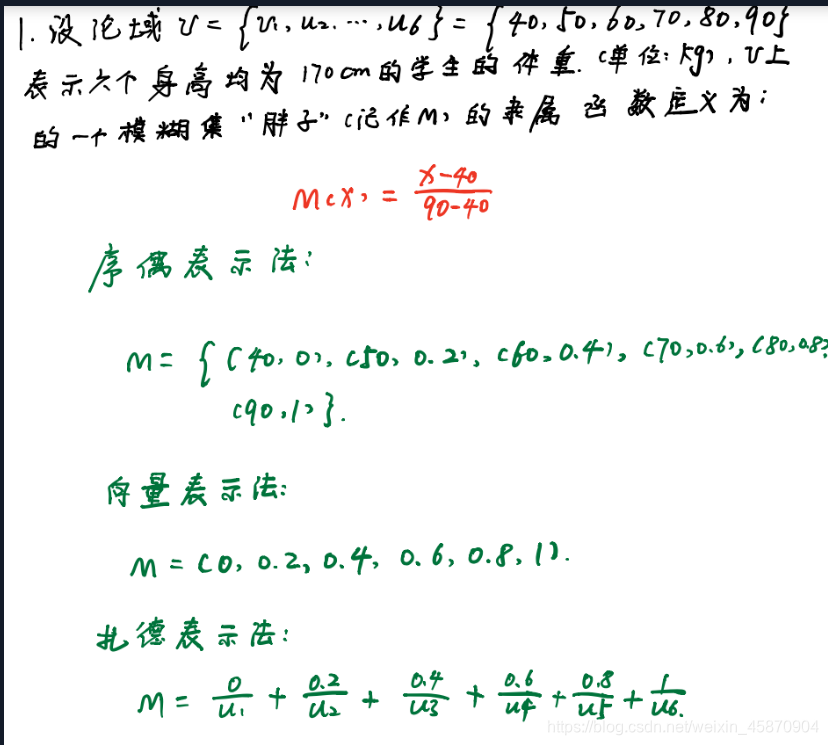 1. 设论域 U = {u₁, u₂, ..., u6} = {40, 50, 60, 70, 80, 90}
表示六个身高均为 170cm的学生的体重. (单位: kg), U上
的一个模糊集 "胖子" (记作M) 的隶属函数定义为:
M(x) = \frac{x-40}{90-40}
序偶表示法:
M = {(40, 0), (50, 0.2), (60, 0.4), (70, 0.6), (80, 0.8),
(90, 1)}.
向量表示法:
M = (0, 0.2, 0.4, 0.6, 0.8, 1).
扎德表示法:
M = \frac{0}{u₁} + \frac{0.2}{u₂} + \frac{0.4}{u3} + \frac{0.6}{u4} + \frac{0.8}{u5} + \frac{1}{u6}.
https://blog.csdn.net/weixin_45870904